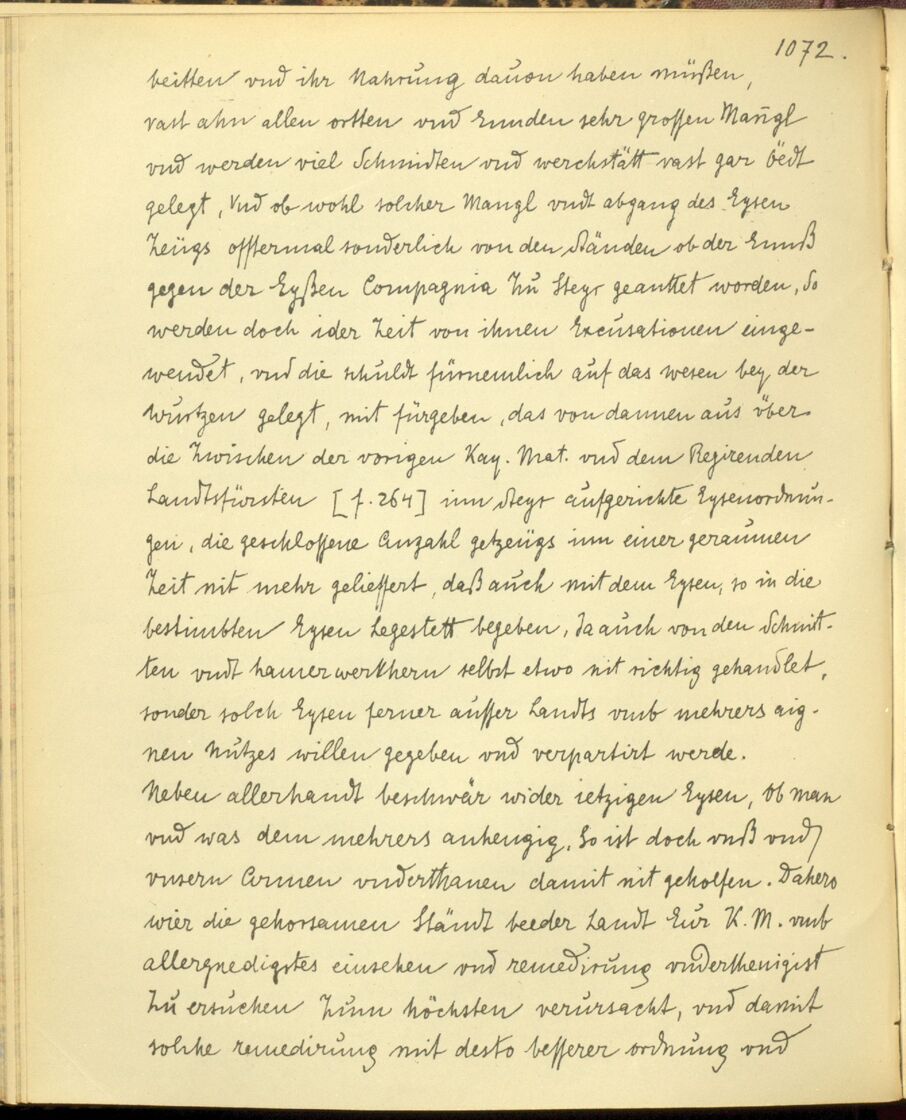 1072.
beitten vnd ihr Nahrung dauon haben müßen,
vast ahn allen ortten vnd Ennden sehr grossen Mangl
vnd werden viel Schmidten vnd werchstätt vast gar öedt
gelegt, Vnd ob wohl solcher Mangl vndt abgang des Eysen
Zeügs offtermal sonderlich von den Ständen ob der Ennß
gegen der Eyßen Compagnia Zu Steyr geanttet worden, So
werden doch ider Zeit von ihnen Excusationen einge-
wendet, vnd die schuldt fürnemlich auf das wesen bey der
Wurtzen gelegt, mit fürgeben, das von dannen aus über
die Zwischen der vorigen Kay. Mat. vnd dem Regirenden
Landtsfürsten [f. 264] inn Steyr aufgerichte Eysenordnun-
gen, die geschlossene Anzahl getzeügs inn einer geraumen
Zeit nit mehr gelieffert, daß auch mit dem Eysen, so in die
bestimbten Eysen Legestett begeben, Ja auch von den Schmit-
ten vndt hamerwerkhern selbst etwo nit richtig gehandlet,
sonder solch Eysen ferner ausser Landts vmb mehrers aig-
nen Nutzes willen gegeben vnd verpartirt werde.
Neben allerhandt beschwär wider ietzigen Eysen, Ob man
vnd was dem mehrers anhengig, So ist doch vnß vnd
vnsern Armen vnderthanen damit nit geholfen. Dahero
wier die gehorsamen Ständt beeder Landt Eur K. M. vmb
allergnedigstes einsehen vnd remedirung vnderthenigist
Zu ersuchen Zum höchsten verursacht, vnd damit
solche remedirung mit desto besserer ordnung vnd